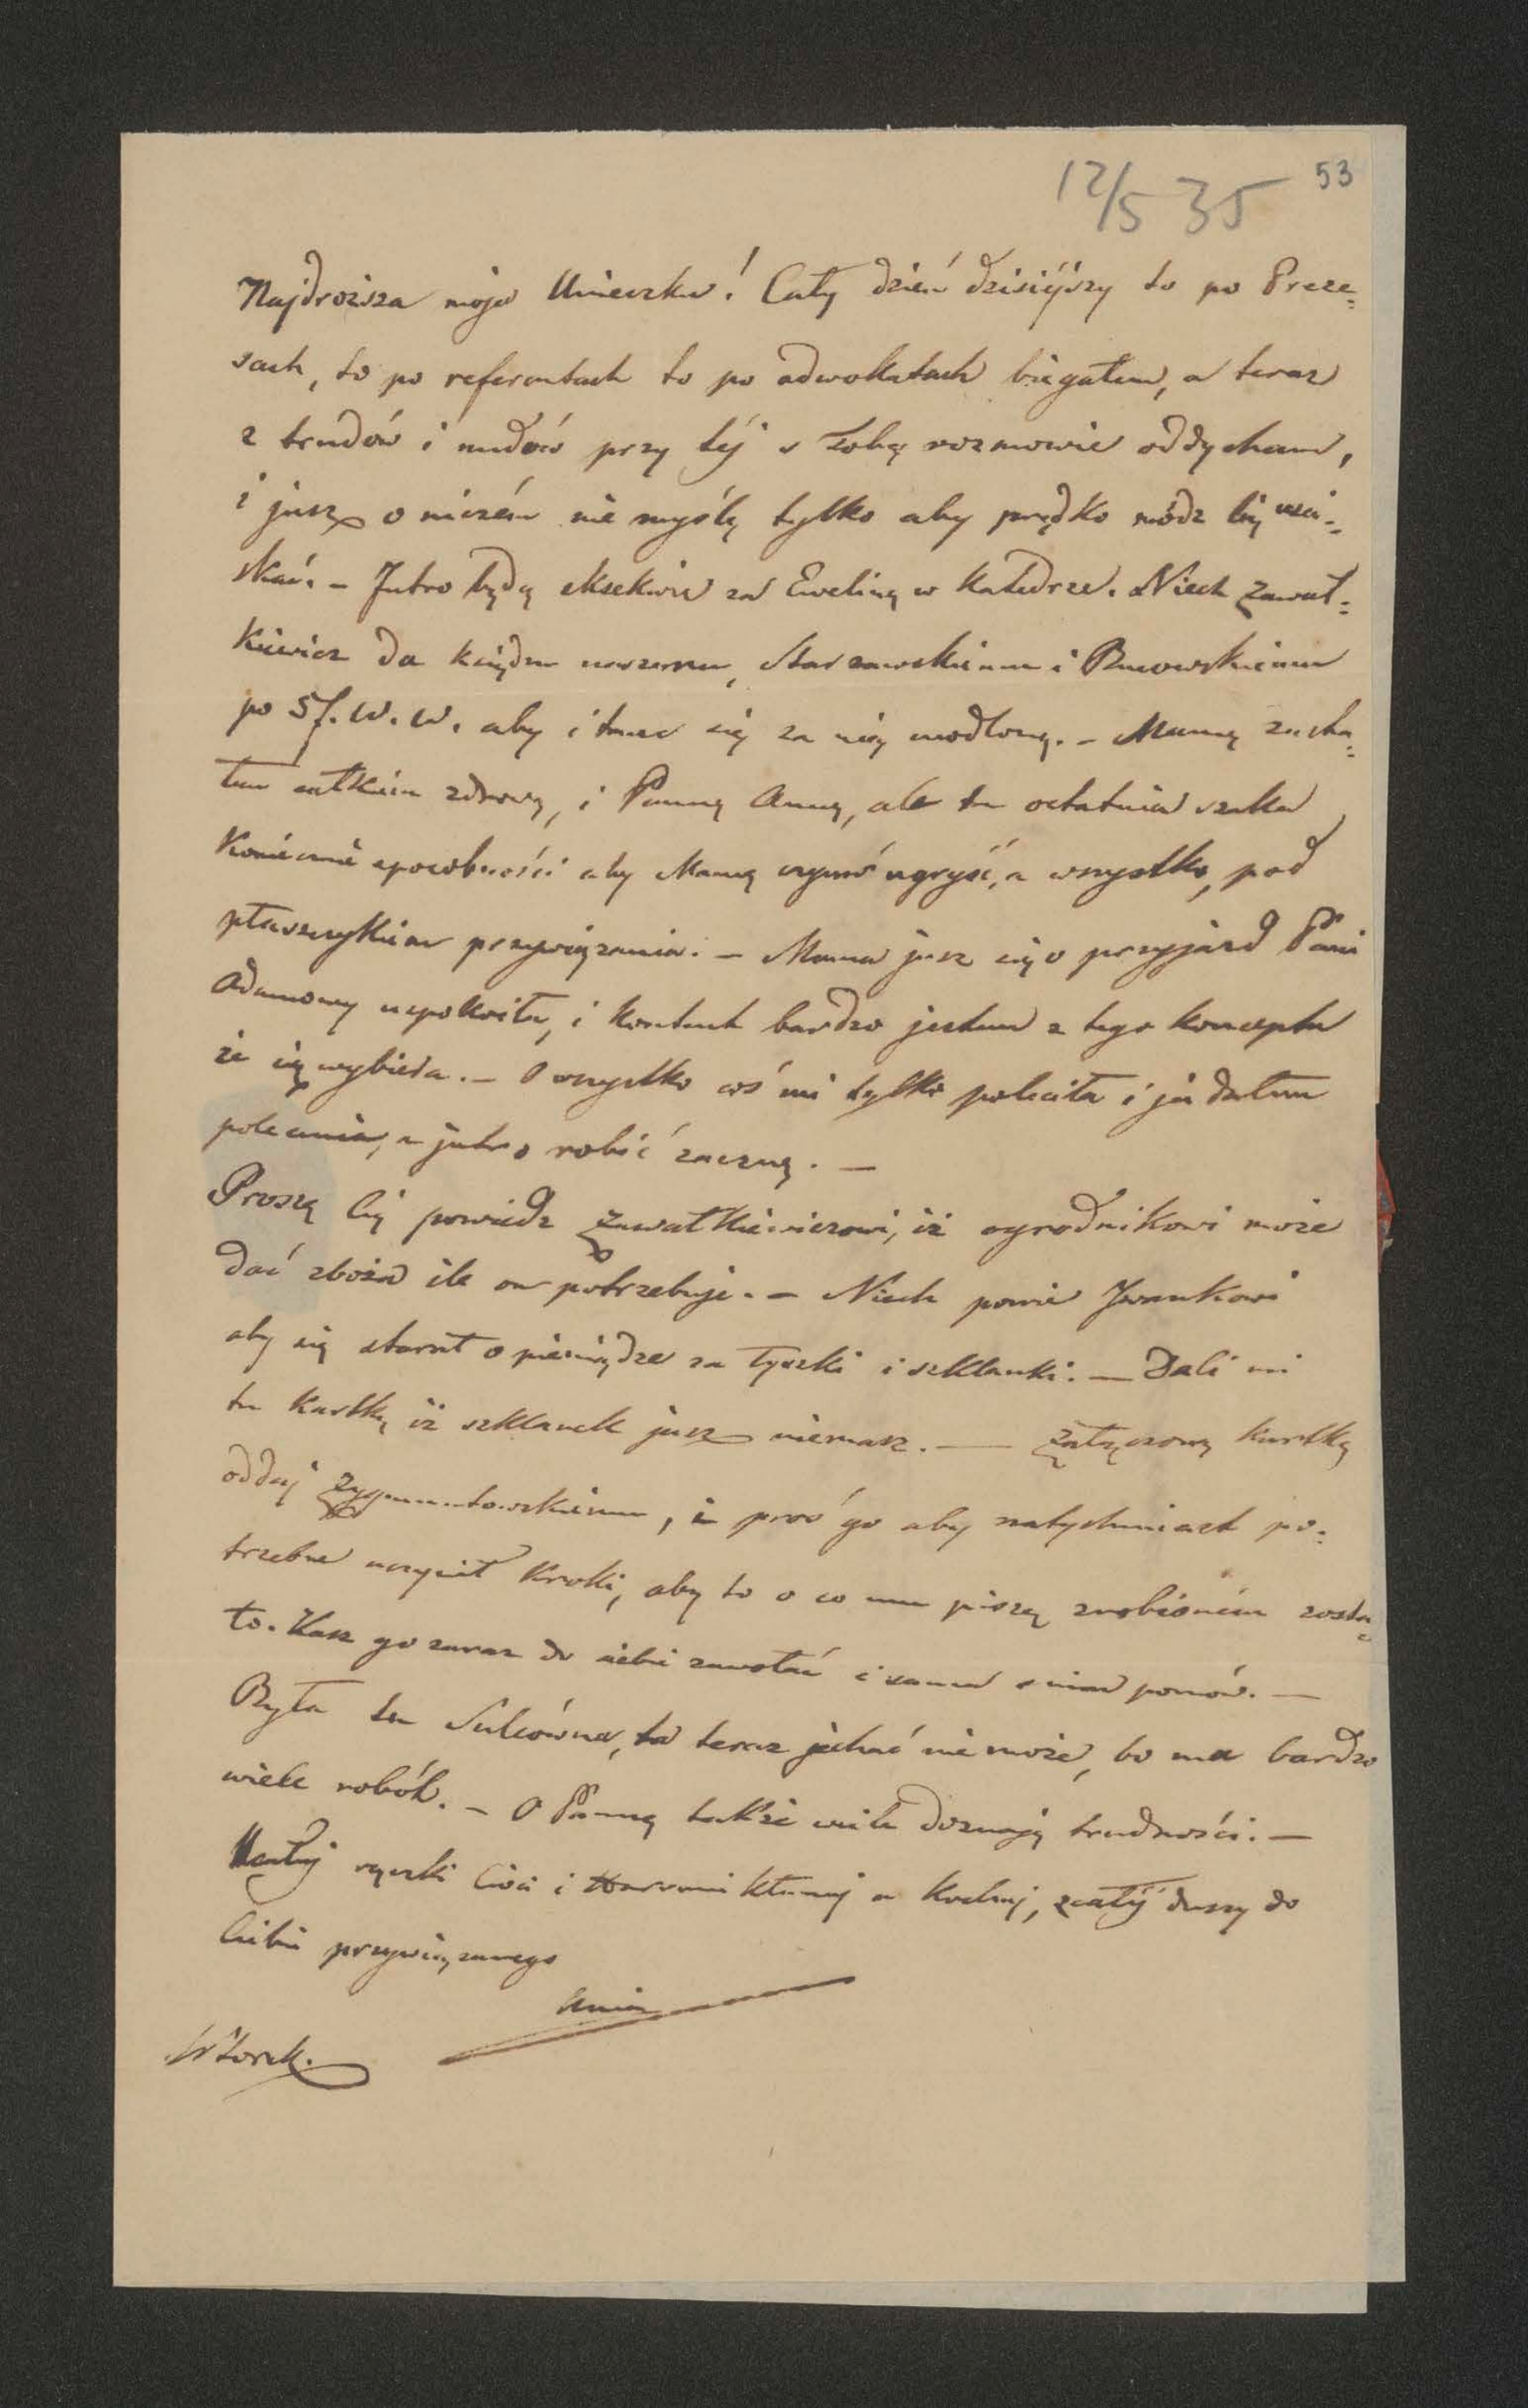 53
12/5 35
Najdroższa moja Unieczku! Cały dzień dzisiéjszy to po Preze=
sach, to po referentach to po adwokatach biegałem, a teraz
z trudów i nudów przy téj s Tobą rozmowie oddycham,
i jusz o niczém nie myślę tylko aby prędko módz Cię uści=
skać. – Jutro będą eksekwie za Ewelinę w Katedrze. Niech Zawał=
kiewicz da księdzu naszemu, Starzawskiemu i
po 5 f. W. W. aby i tam się za nię modlono. – Mamę zasta=
łem całkiem zdrową, i Pannę Annę, ale ta ostatnia szuka
Koniecznie sposobności aby Mamę czymś ugryść, a wszystko, pod
płaszczykiem przywiązania. – Mama jusz się o przyjazd Pani
Adamowy uspokoiła, i kontent bardzo jestem z tego konceptu
że się wybiera. – O wszystko coś mi tylko poleciła i ja dałem
polecenia, a jutro robić zaczną. –
Proszę Cię powiedz Zawałkiewiczowi, iż ogrodnikowi może
dać zboża ile on potrzebuje. – Niech powie Iwankowi
aby się starał o pieniądze za łyszki i szklanki. – Dali mi
tu Kartkę iż szklanek jusz niemasz. — Załączoną kartkę
oddaj Zygmuntowskiemu, i proś go aby natychmiast po=
trzebne uczynił kroki, aby to o co mu piszę zrobioném zosta=
ło. Kasz go zaraz do siebie zawołać i sama s nim pomów. —
Była tu Sulcówna, ta teraz jechać nie może, bo ma bardzo
wiele robót. – O Pannę także wiele doznaję trudności. —
Ucałuj rączki Cioci i kłaniaj a Kochaj, z całéj duszy do
Ciebie przywiązanego
Unia
Wtorek.